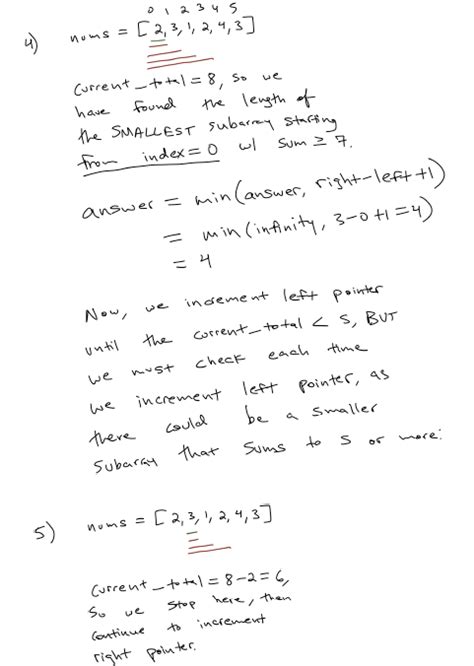 0 1 2 3 4 5
4) nums = [2,3,1,2,4,3]
current_total = 8, so we
have found the length of
the SMALLEST subarray starting
from index=0 w/ sum ≥ 7.
answer = min(answer, right-left+1)
= min(infinity, 3-0+1=4)
= 4
Now, we increment left pointer
until the current_total < s, BUT
we must check each time
we increment left pointer, as
there could be a smaller
subarray that sums to s or more:
5) nums = [2,3,1,2,4,3]
current_total = 8-2=6,
so we stop here, then
continue to increment
right pointer.